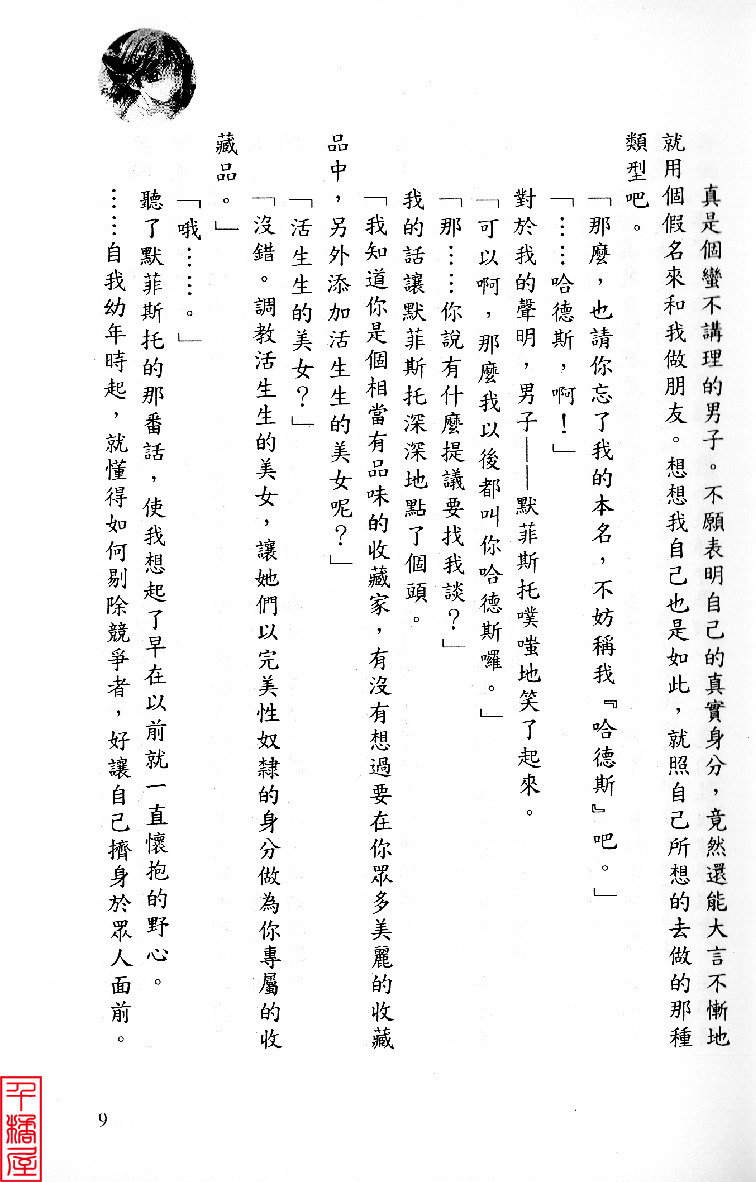 真是個蠻不講理的男子。不願表明自己的真實身分，竟然還能大言不慚地
就用個假名來和我做朋友。想想我自己也是如此，就照自己所想的去做的那種
類型吧。
「那麼，也請你忘了我的本名，不妨稱我『哈德斯』吧。」
「……哈德斯，啊！」
對於我的聲明，男子——默菲斯托噗嗤地笑了起來。
「可以啊，那麼我以後都叫你哈德斯囉。」
「那……你說有什麼提議要找我談？」
我的話讓默菲斯托深深地點了個頭。
「我知道你是個相當有品味的收藏家，有沒有想過要在你眾多美麗的收藏
品中，另外添加活生生的美女呢？」
「活生生的美女？」
「沒錯。調教活生生的美女，讓她們以完美性奴隸的身分做為你專屬的收
藏品。」
「哦……。」
聽了默菲斯托的那番話，使我想起了早在以前就一直懷抱的野心。
……自我幼年時起，就懂得如何剔除競爭者，好讓自己擠身於眾人面前。
9
千橘屋